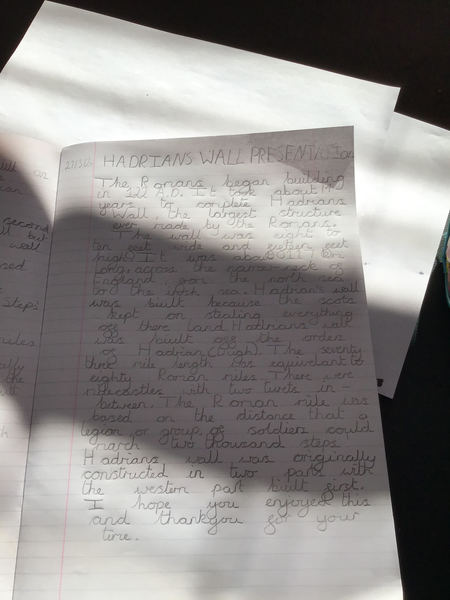 HADRIANS WALL PRESENTATION
The Romans began building
in 122 A.D. It took about 14
years to complete Hadrians
Wall, the largest structure
ever made by the Romans.
The wall was eight to
ten feet wide and sixteen feet
high. It was about
long, across the narrow neck of
England, from the north sea
to the irish sea. Hadrian's wall
was built because the scots
kept on stealing everything
off there land Hadrians wall
was built off the orders
of Hadrian (Dugh). The seventy
three mile length was equivelant to
eighty Roman miles. There were
milecastles with two turrets in-
between. The Roman mile was
based on the distance that a
legion or group of soldiers could
march two thousand steps.
Hadrians wall was originally
constructed in two parts with
the western part built first.
I hope you enjoyed this
and thankyou for your
time.
second
wall
Steps
miles.
the